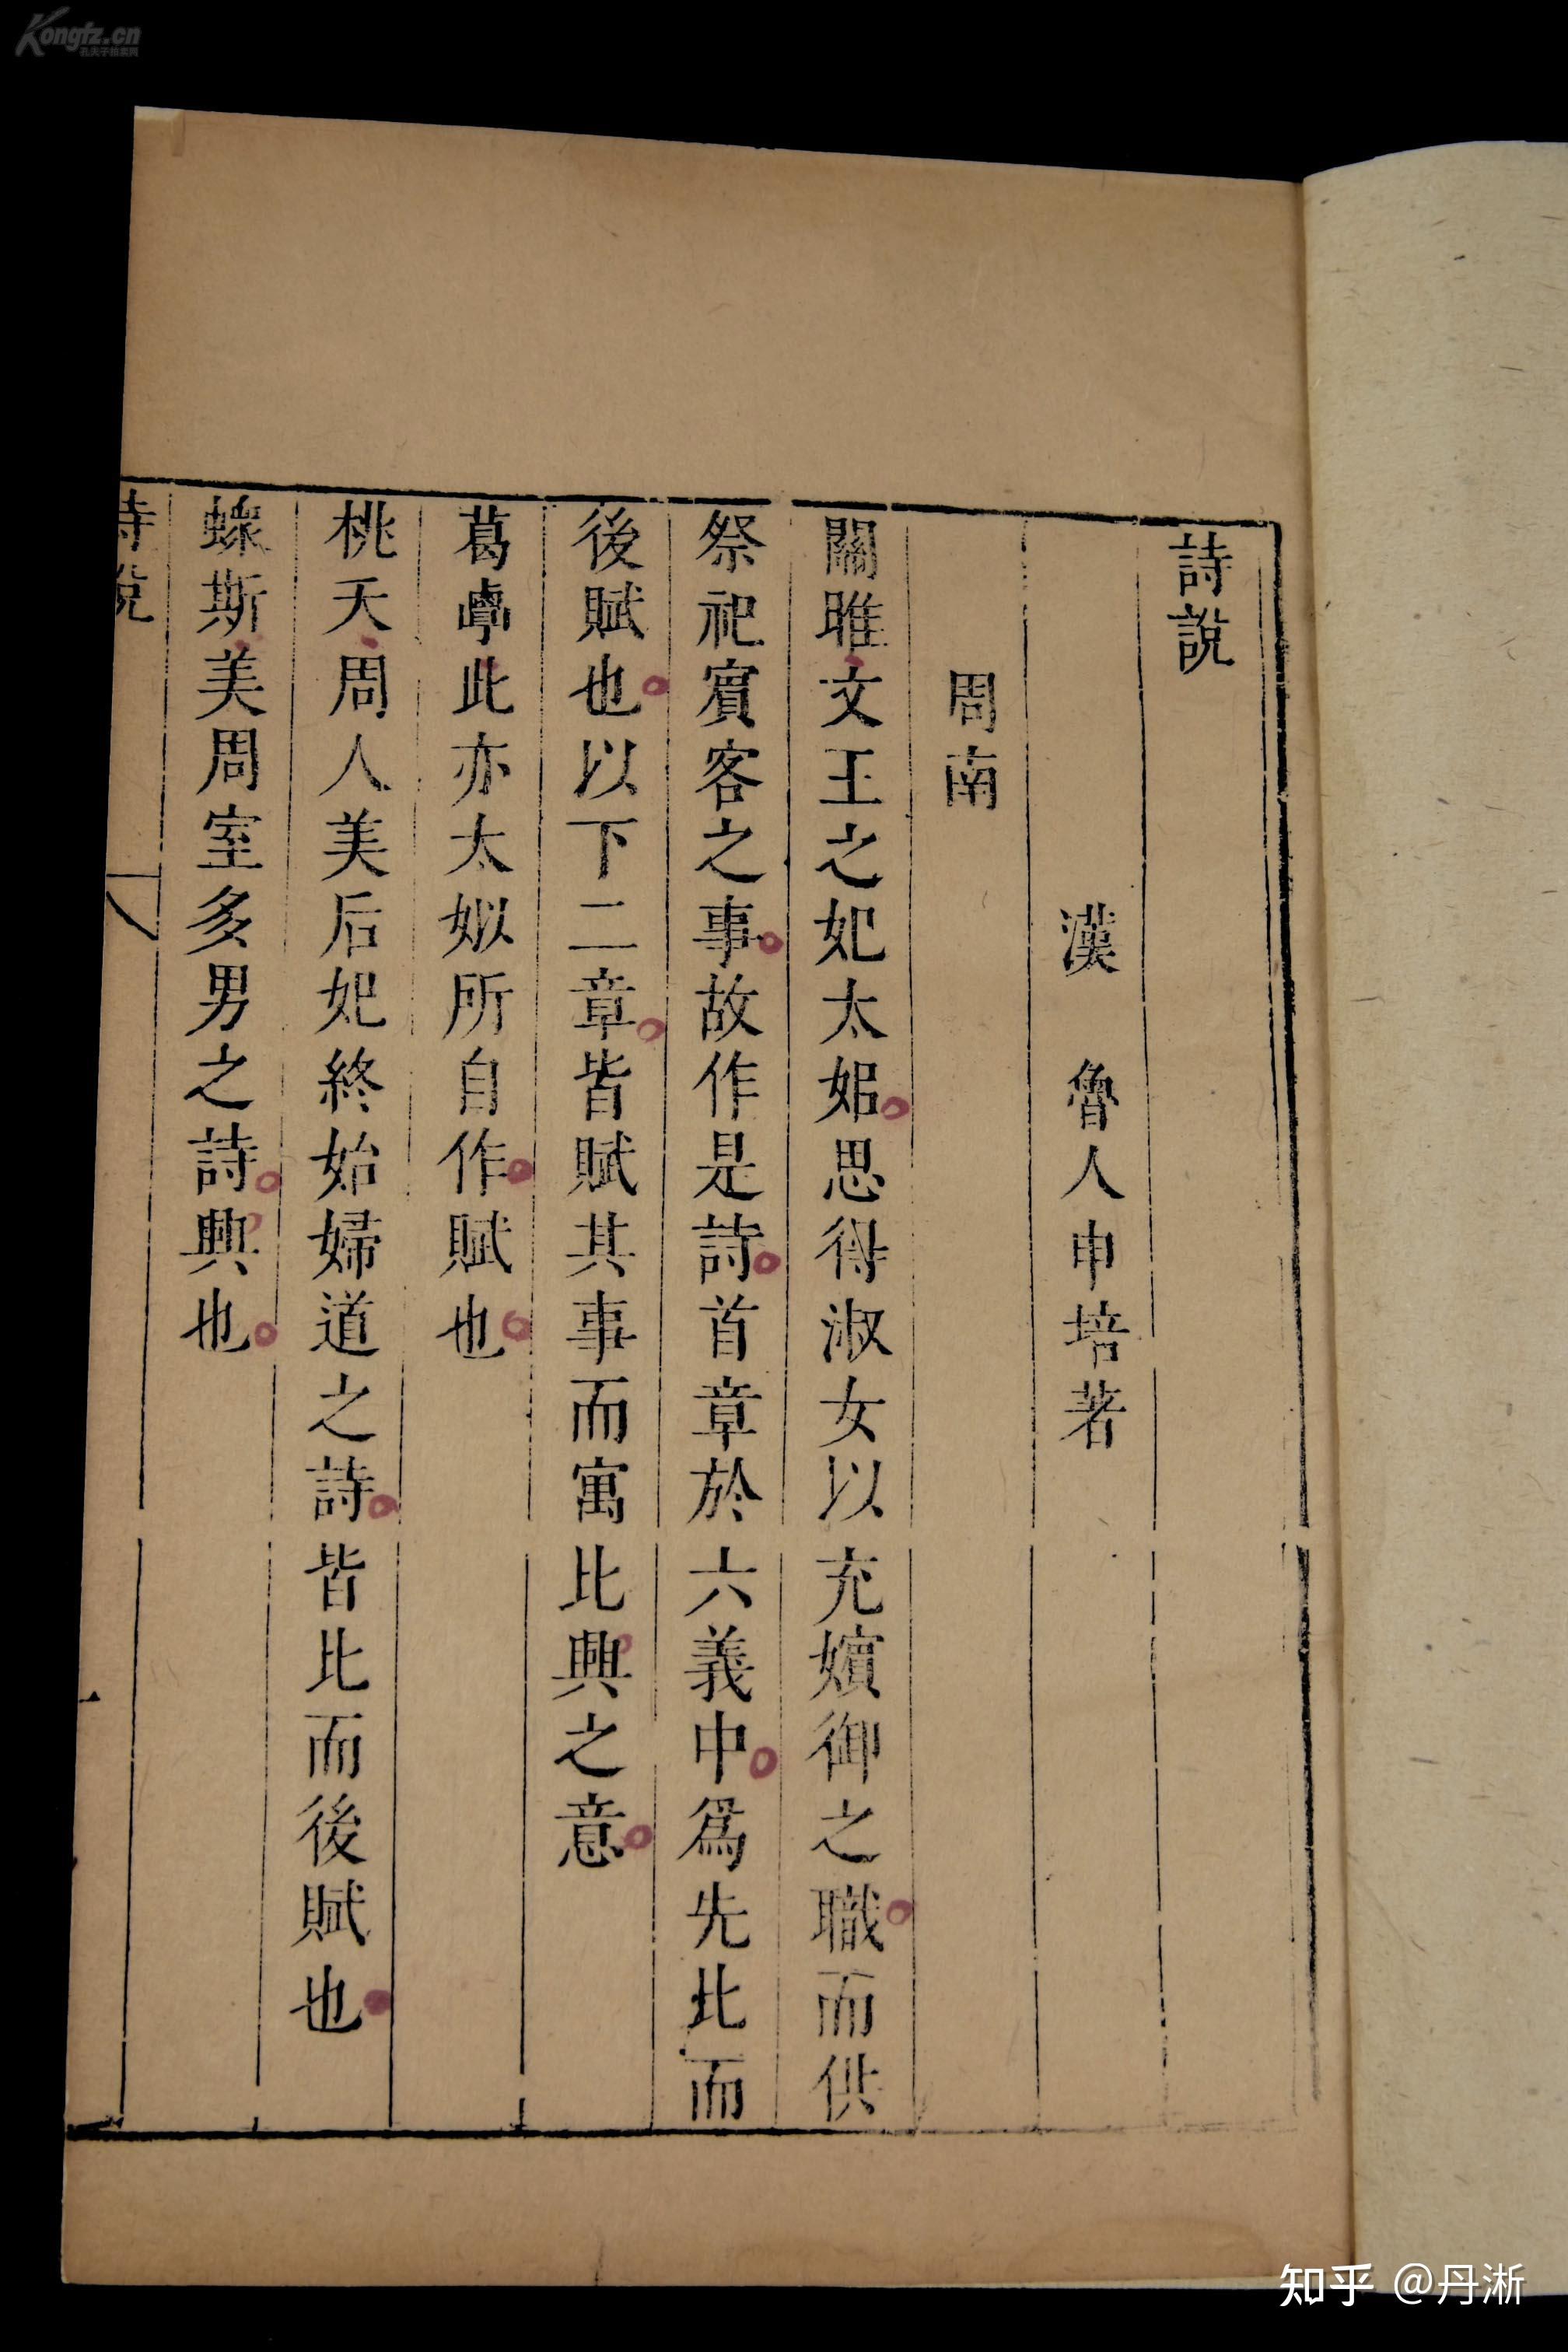 Kongfz.cn
詩說
漢 魯人申培著
周南
關雎文王之妃太姒思得淑女以充嬪御之職而供
祭祀賓客之事故作是詩首章於六義中爲先比而
後賦也以下二章皆賦其事而寓比興之意
葛覃此亦太姒所自作賦也
桃夭周人美后妃終始婦道之詩皆比而後賦也
螽斯美周室多男之詩興也
詩說
知乎 @丹淅